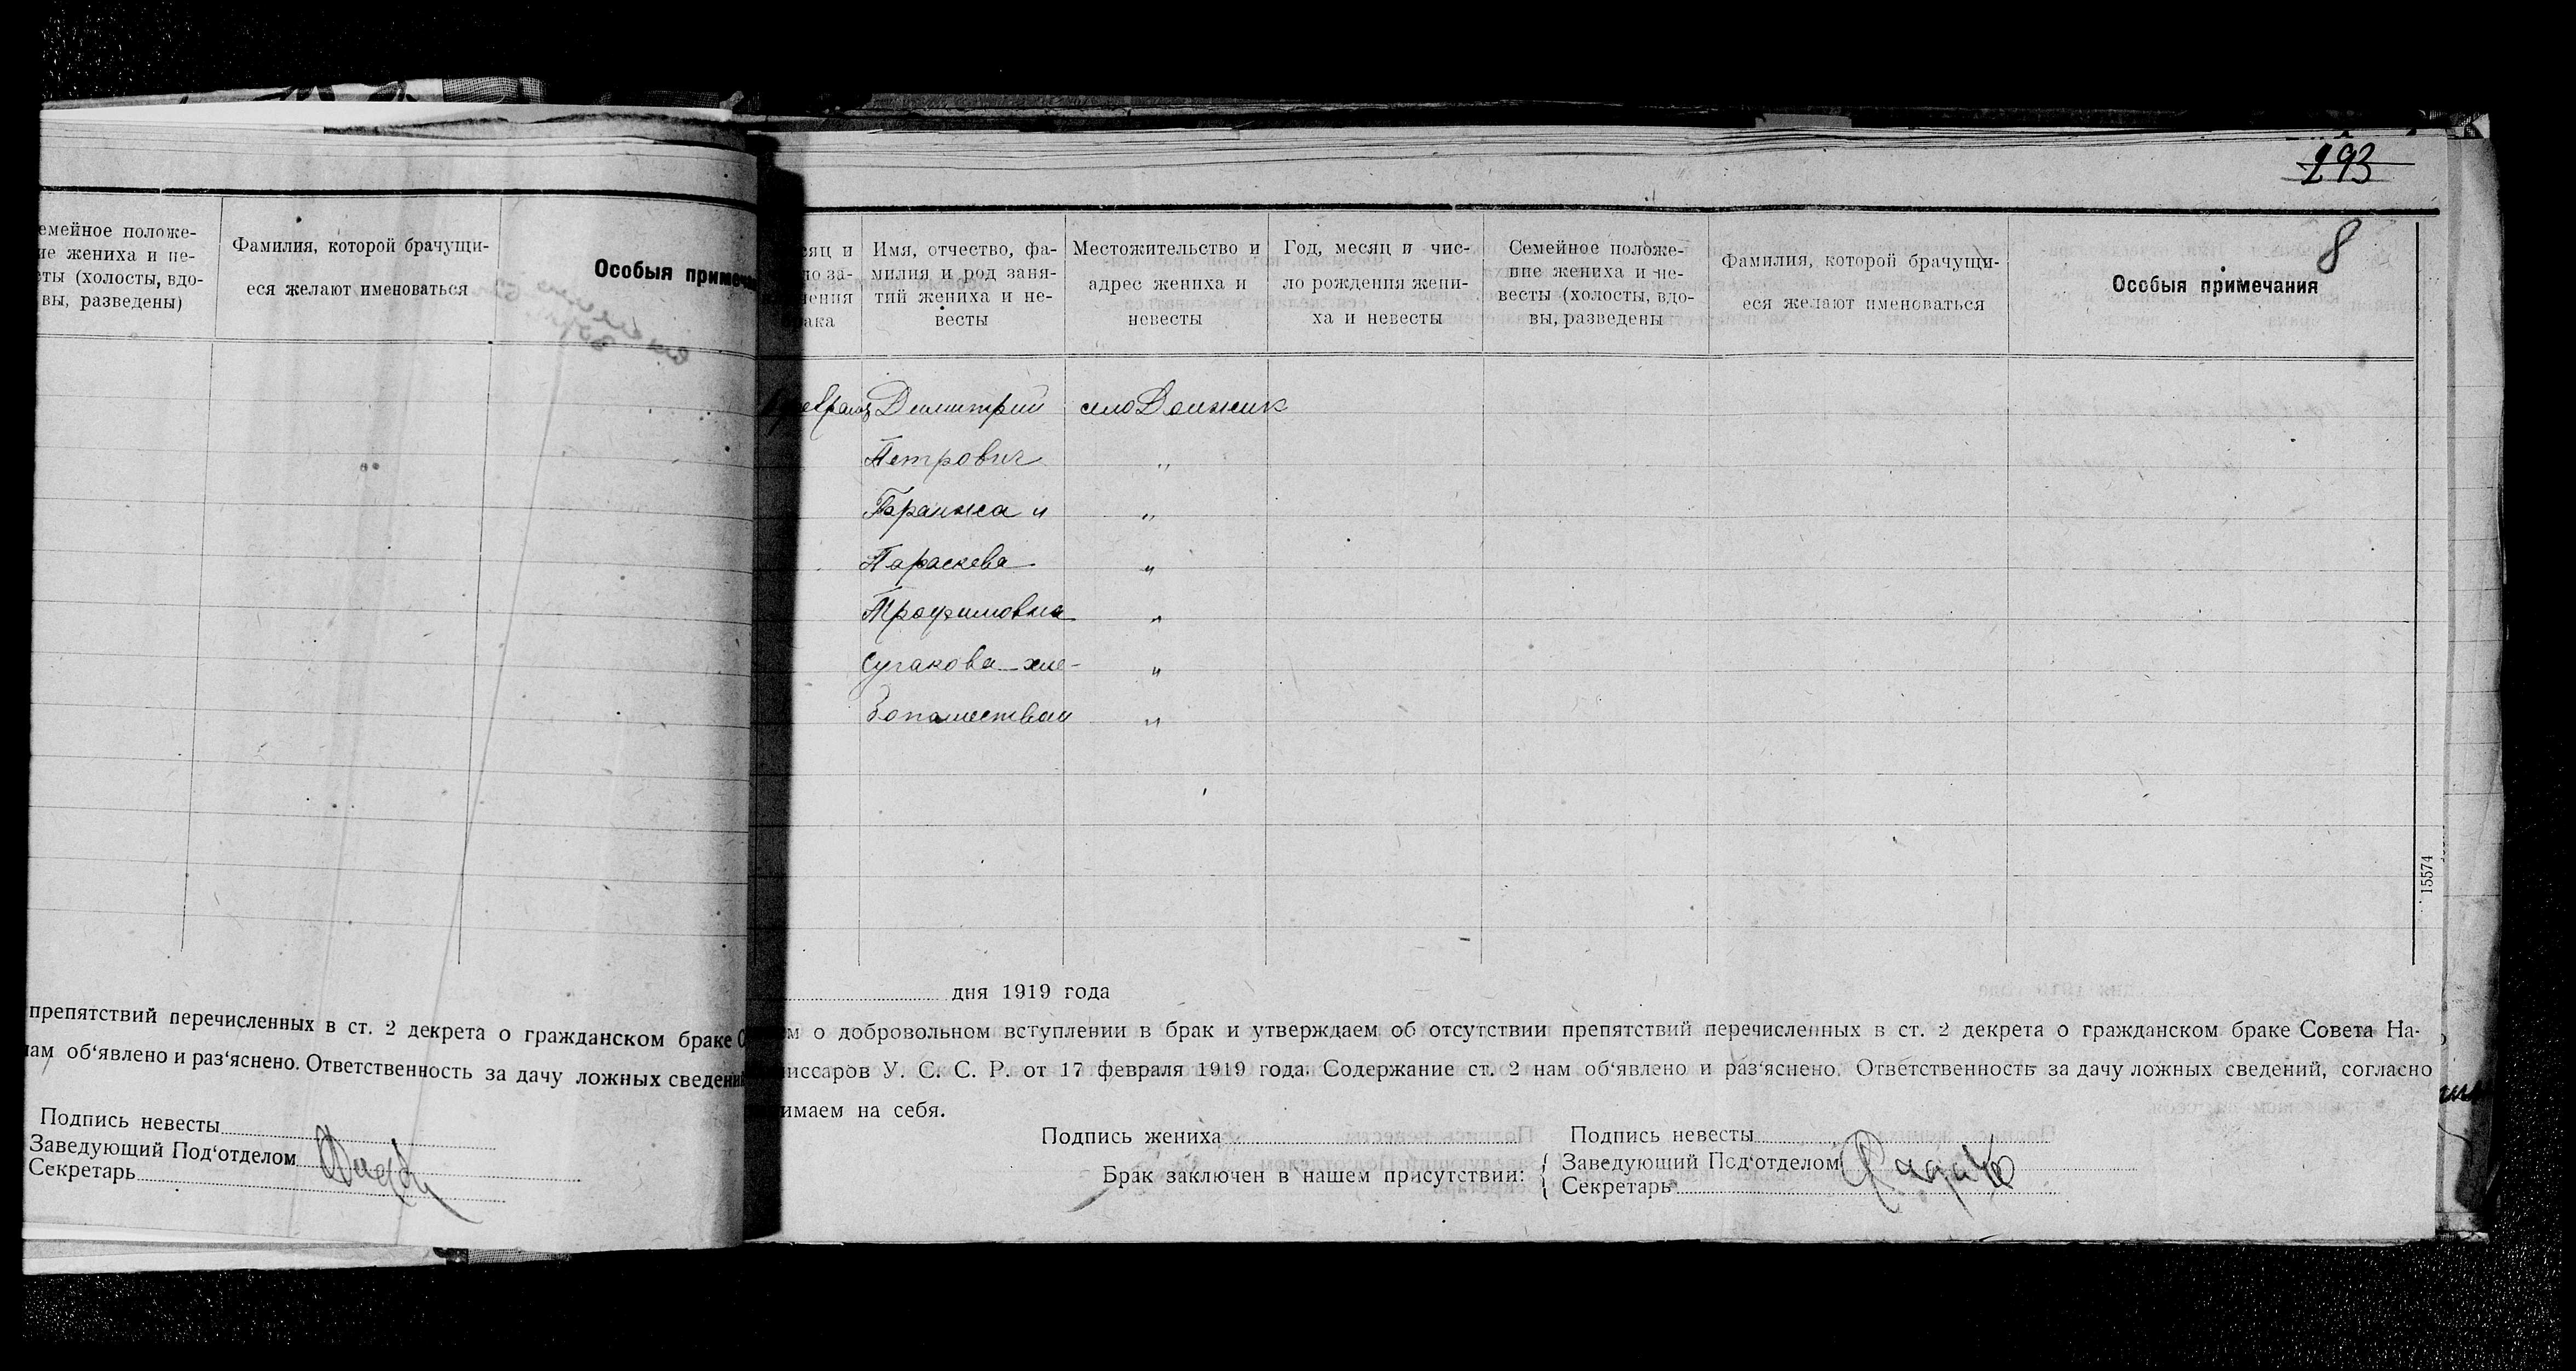 293
8
емейное положе-
ие жениха и не-
сты (холосты, вдо-
вы, разведены)
Фамилия, которой брачущи-
еся желают именоваться
Особыя примеча
сяц и
ло за-
чения
рака
Имя, отчество, фа-
милия и род заня-
тий жениха и не-
весты
Местожительство и
адрес жениха и
невесты
Год, месяц и чис-
ло рождения жени-
ха и невесты
Семейное положе-
ние жениха и не-
весты (холосты, вдо-
вы, разведены
Фамилия, которой брачущи-
еся желают именоваться
Особыя примечания
Димитрий село Должик
Петрович "
и "
Параскева "
Трофимовна "
Сугакова хле- "
бопашеством "
15574
препятствий перечисленных в ст. 2 декрета о гражданском браке С
нам об‘явлено и раз‘яснено. Ответственность за дачу ложных сведений
Подпись невесты
Заведующий Под‘отделом
Секретарь
дня 1919 года
ем о добровольном вступлении в брак и утверждаем об отсутствии препятствий перечисленных в ст. 2 декрета о гражданском браке Совета На-
миссаров У. С. С. Р. от 17 февраля 1919 года. Содержание ст. 2 нам об‘явлено и раз‘яснено. Ответственность за дачу ложных сведений, согласно
имаем на себя.
Подпись жениха Подпись невесты
Брак заключен в нашем присутствии: Заведующий Под‘отделом
Секретарь